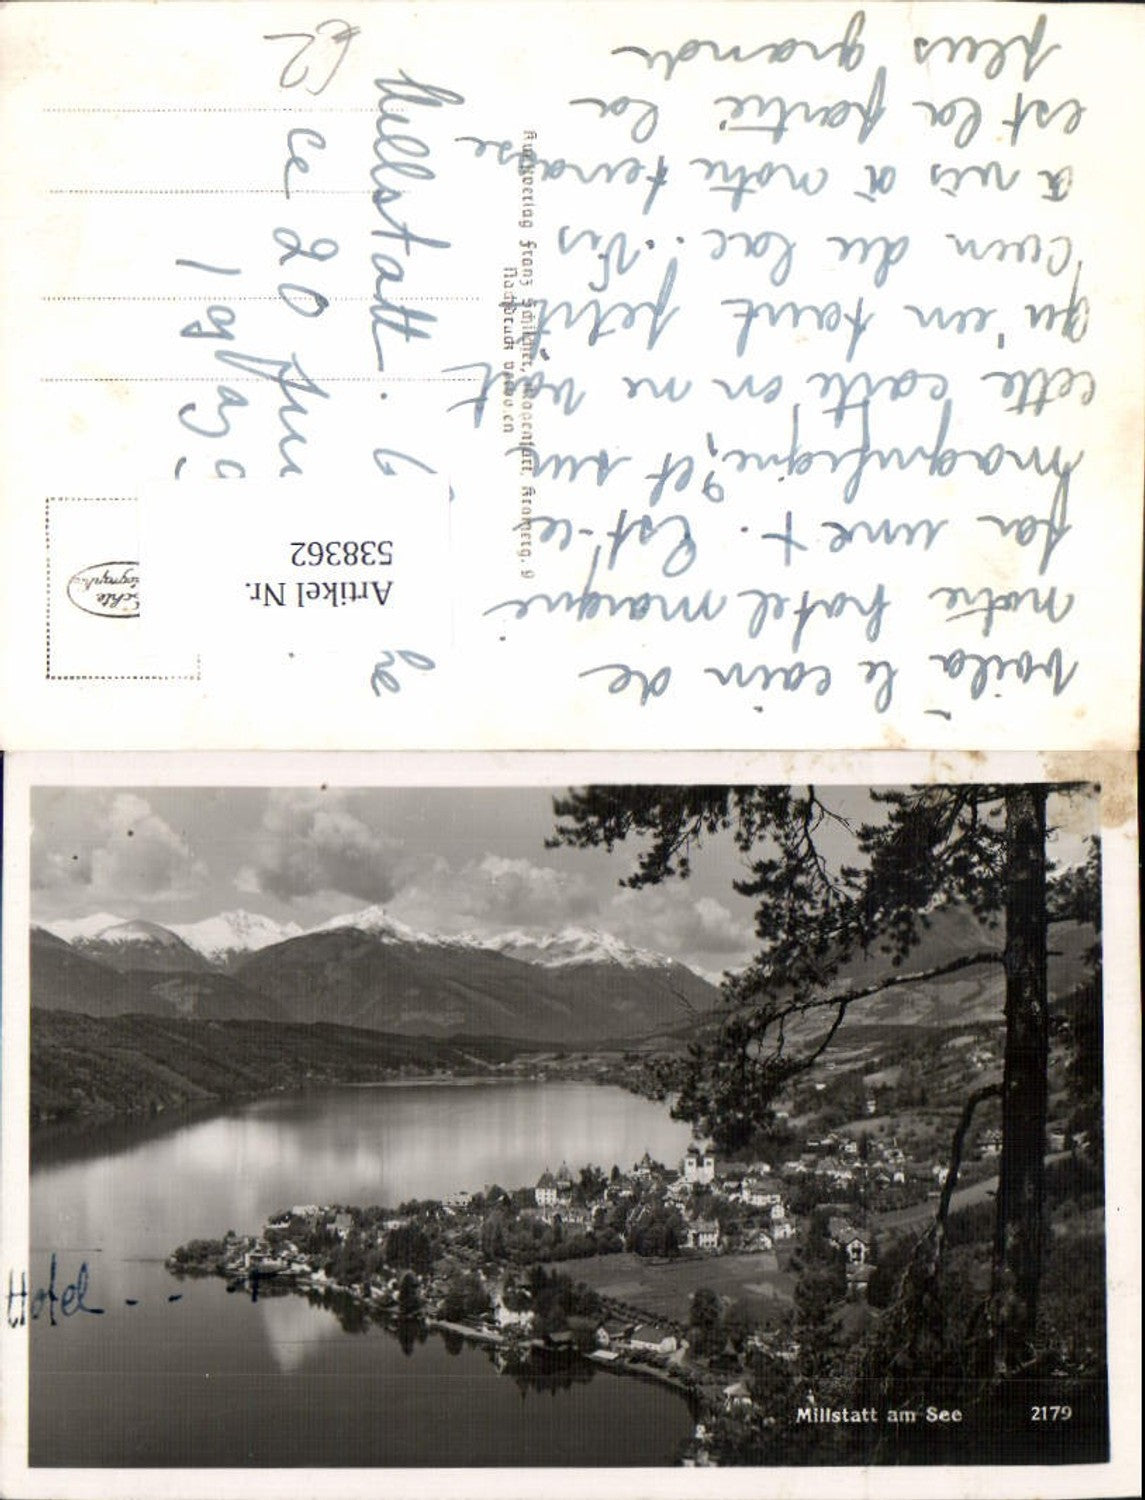 voilà le coin de
notre hotel marqué
par une +. Est-ce
magnifique, et sur
cette carte on ne voit
qu'un tout petit
coin du lac. Vis
à vis à notre terrasse
est la partie la
plus grande
Millstatt.
ce 20 Juin
193
62
Kunstverlag Franz Schilcher, Klagenfurt,
Nachdruck verboten
Echte
Photographie
Artikel Nr.
538362
Hotel - - +
Millstatt am See 2179